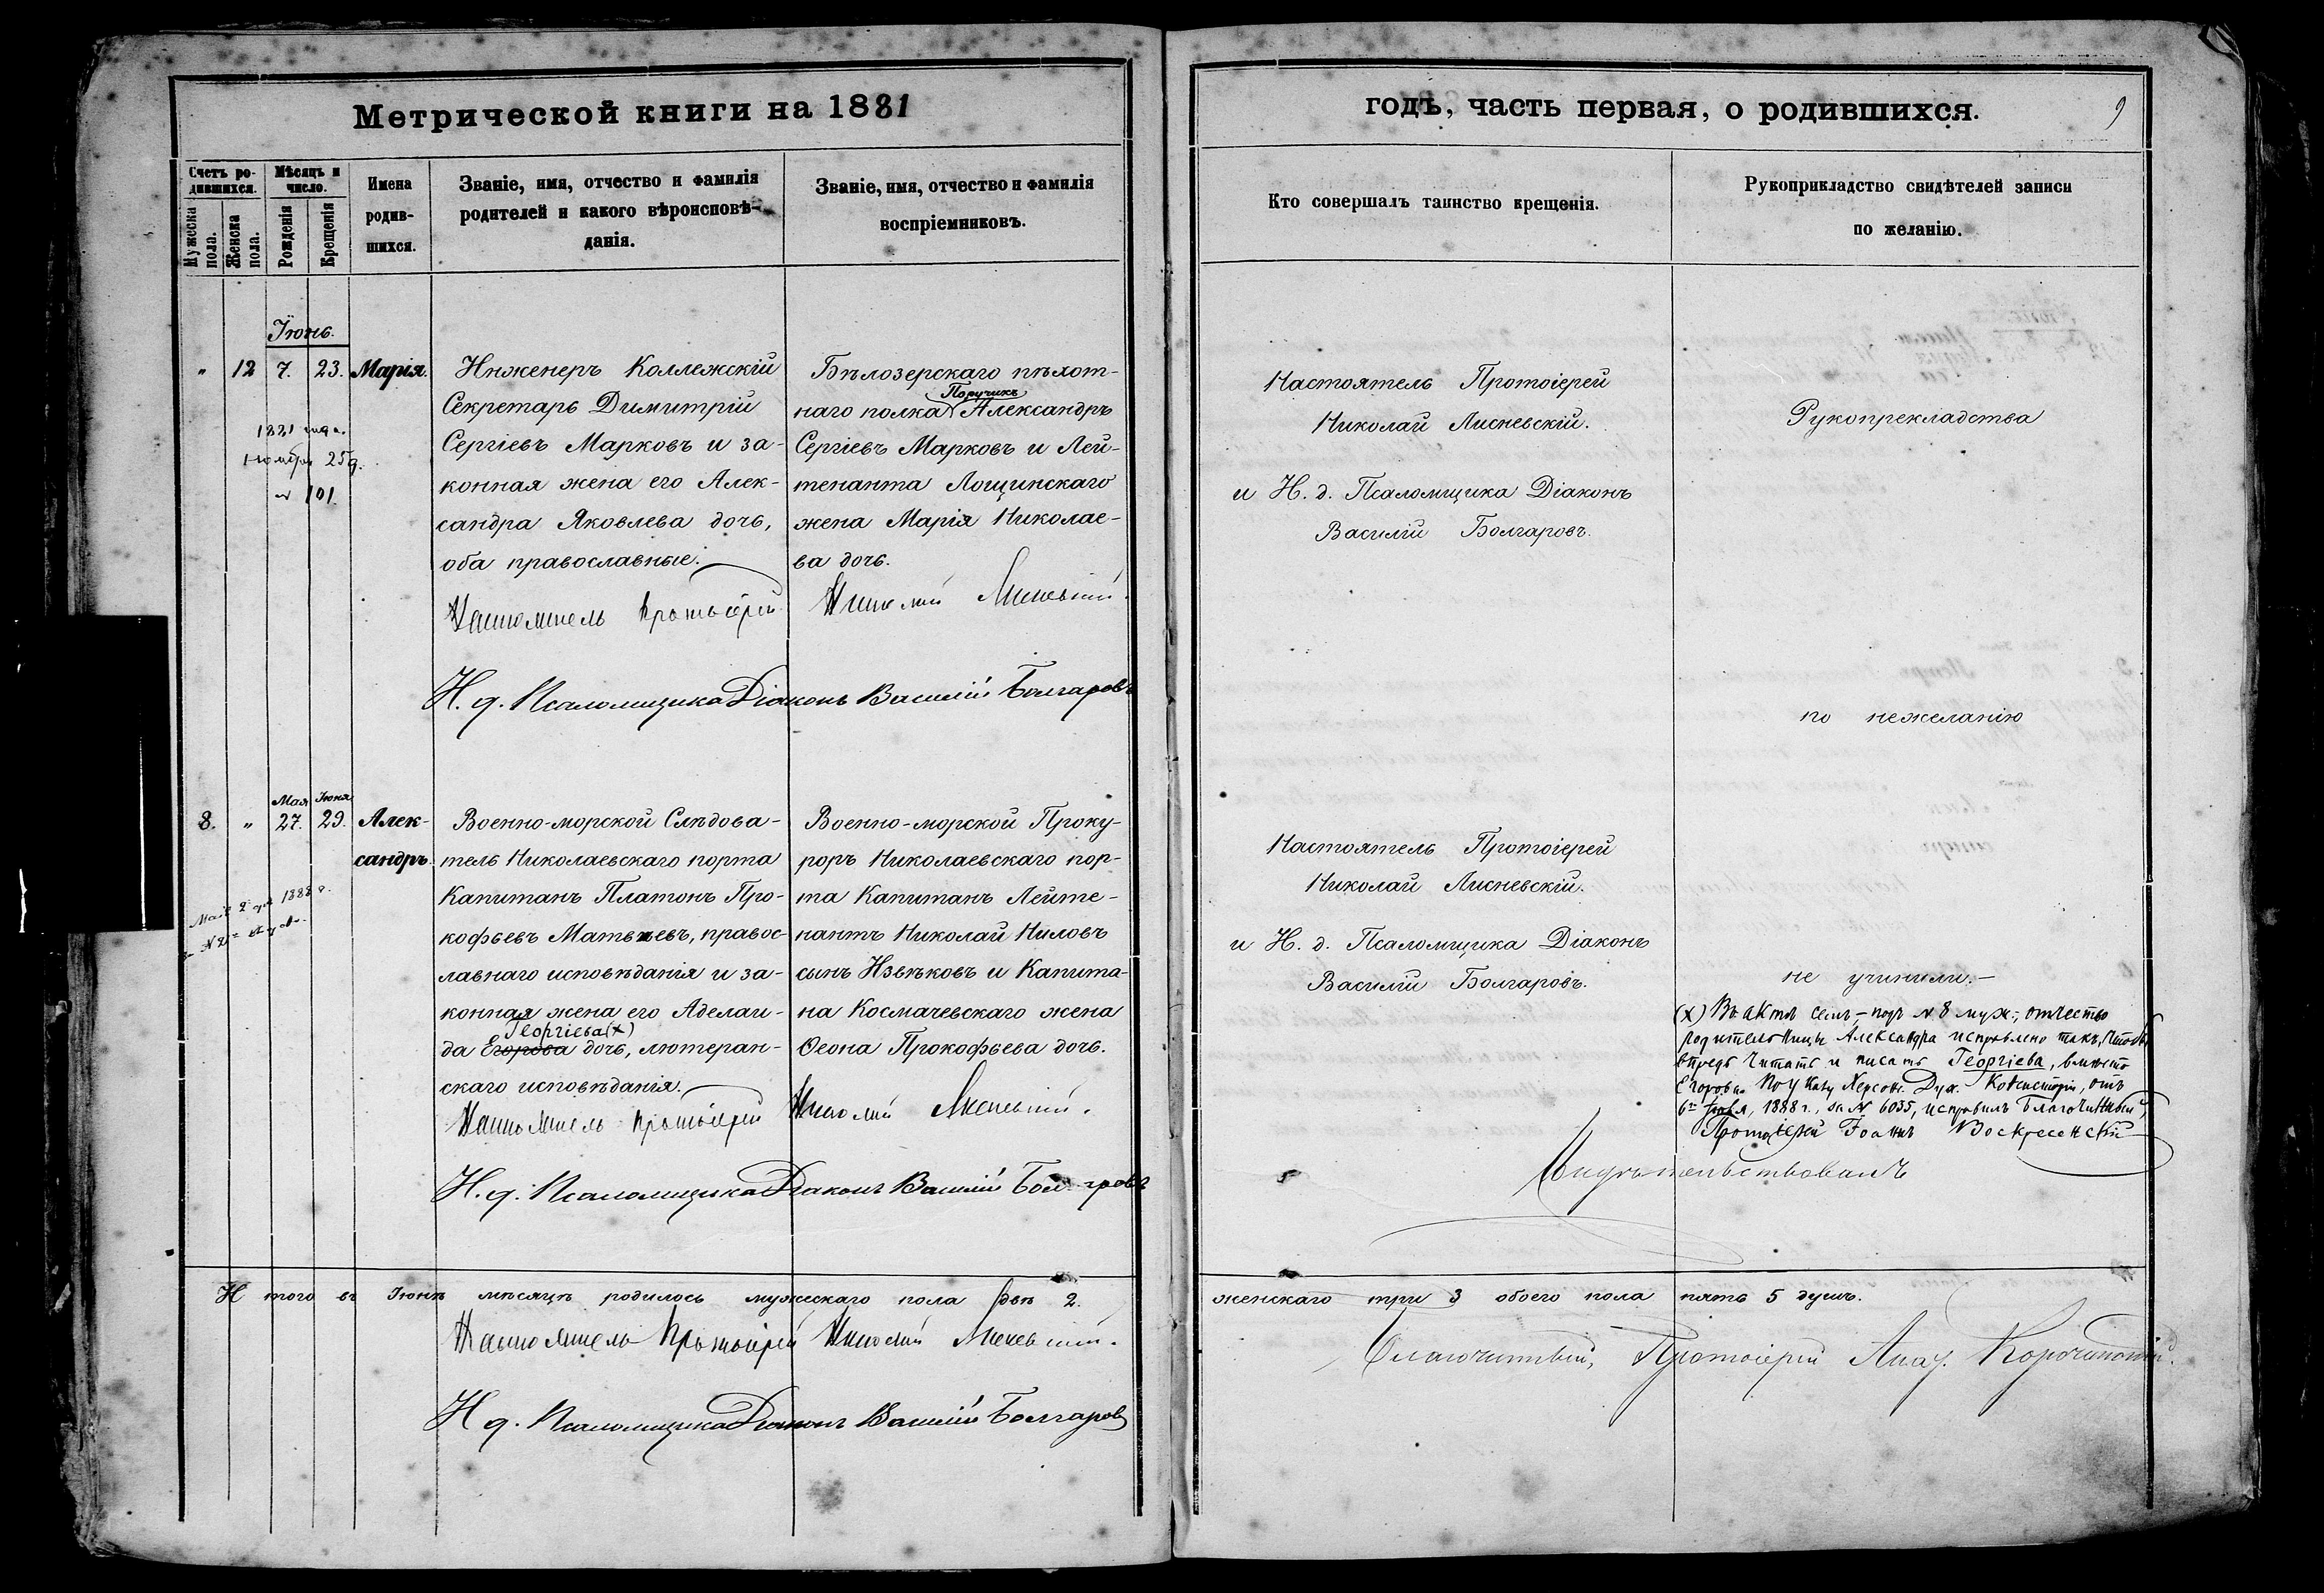 Метрической книги на 1881
Счетъ ро-
дившихся.
Мужеска
пола.
Женска
пола.
Мѣсяцъ и
число.
Рожденія
Крещенія
Имена
родив-
шихся.
Званіе, имя, отчество и фамилія
родителей и какого вѣроисповѣ-
данія.
Званіе, имя, отчество и фамилія
воспріемниковъ.
Іюнь.
" 12 7. 23. Марія.
1881 года.
Ноября 25 д.
№ 101.
Инженеръ Коллежскій
Секретарь Димитрій
Сергіевъ Марковъ и за-
конная жена его Алек-
сандра Яковлева дочь,
оба православные.
Бѣлозерскаго пѣхот-
Поручикъ
наго полка Александръ
Сергіевъ Марковъ и Лей-
тенанта Лощинскаго
жена Марія Николае-
ва дочь.
Настоятель Протоіерей Николай Лисневскій.
И. д. Псаломщика Діаконъ Василій Болгаровъ
Мая Іюня
8. " 27. 29. Алек-
сандръ.
Мая 2 дня 1888 г.
Военно-морской Слѣдова-
тель Николаевскаго порта
Капитанъ Платонъ Про-
кофьевъ Матвѣевъ, правос-
лавнаго исповѣданія и за-
конная жена его Аделаи-
Георгіева (х)
да Егорова дочь, лютеран-
скаго исповѣданія.
Военно-морской Проку-
роръ Николаевскаго пор-
та Капитанъ Лейте-
нантъ Николай Ниловъ
сынъ Извѣковъ и Капита-
на Космачевскаго жена
Ѳеона Прокофьева дочь.
Настоятель Протоіерей Николай Лисневскій.
И. д. Псаломщика Діаконъ Василій Болгаровъ
И того въ Іюнѣ мѣсяцѣ родилось мужескаго пола два 2.
Настоятель Протоіерей Николай Лисневскій.
И д. Псаломщика Діаконъ Василій Болгаровъ
годъ, часть первая, о родившихся.
9
Кто совершалъ таинство крещенія.
Рукоприкладство свидѣтелей записи
по желанію.
Настоятель Протоіерей
Николай Лисневскій.
и И. д. Псаломщика Діаконъ
Василій Болгаровъ.
Рукопрекладства
по нежеланію
Настоятель Протоіерей
Николай Лисневскій.
и И. д. Псаломщика Діаконъ
Василій Болгаровъ.
не учинили.-
(х) Въ актѣ семъ - подъ № 8 муж., отчество
родительницы Александра исправлено такъ, чтобы
впредь читать и писать Георгіева, вмѣсто
Егорова. По указу Херсон. Дух. Консисторіи, отъ
1888 г., за № 6035, исправилъ Благочинный,
Протоіерей Іоаннъ Воскресенскій
Свидѣтельствовалъ
женскаго три 3 обоего пола пять 5 душъ.
Благочинный, Протоіерей